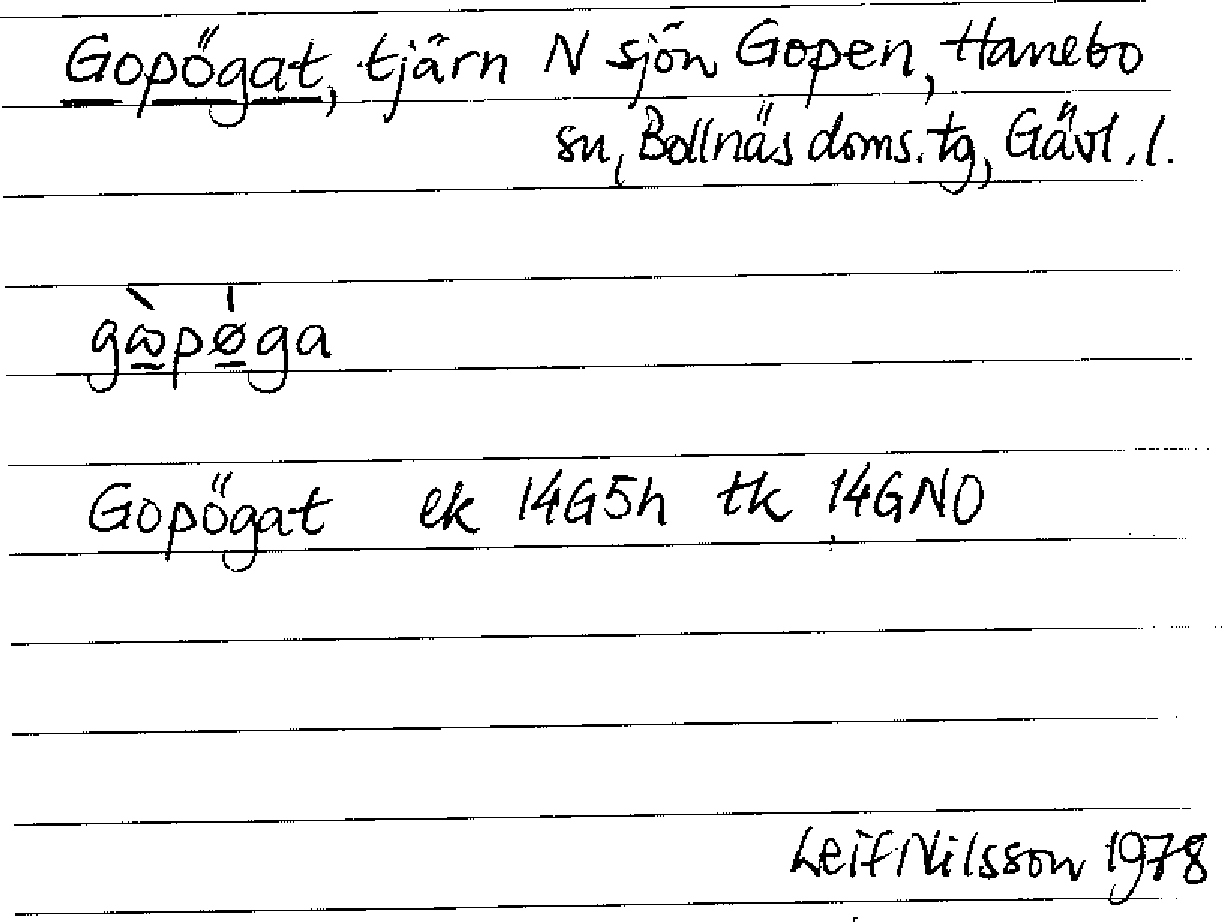 Gopögat, tjärn N sjön Gopen, Hanebo
sn, Bollnäs doms. tg, Gävl. l.
gὼ̲pǿ̲ga
Gopögat ek 14G5h tk 14GNO
Leif Nilsson 1978